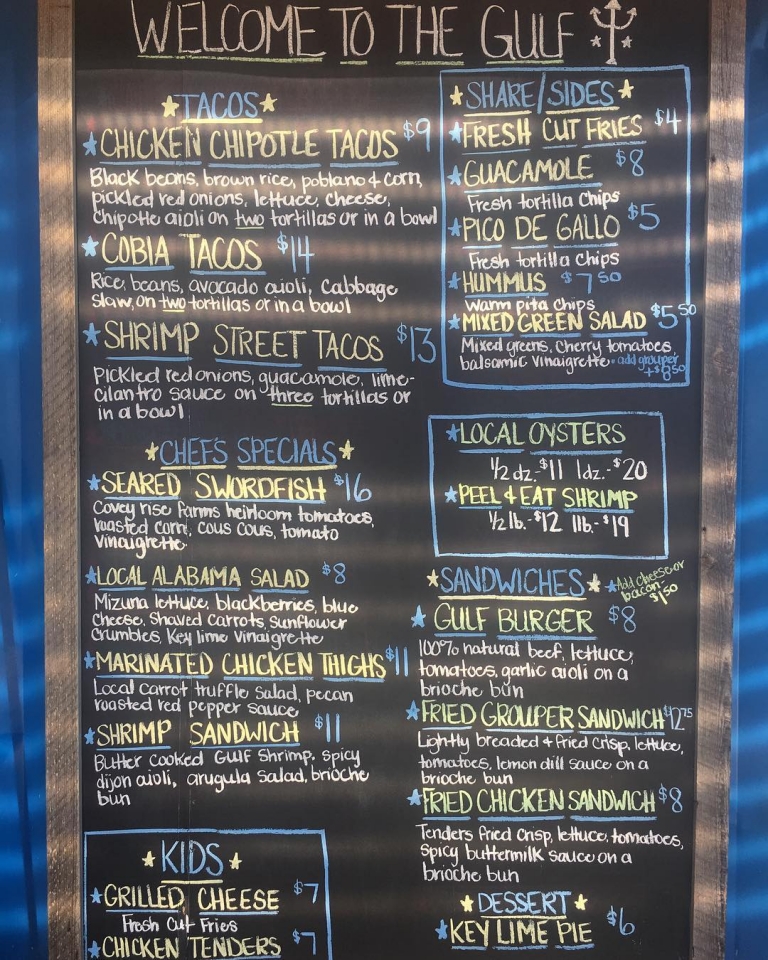 WELCOME TO THE GULF
TACOS
CHICKEN CHIPOTLE TACOS $9
Black beans, brown rice, poblano & corn,
pickled red onions, lettuce, cheese,
Chipotle aioli on two tortillas or in a bowl
COBIA TACOS $14
Rice, beans, avocado aioli, Cabbage
slaw, on two tortillas or in a bowl
SHRIMP STREET TACOS $13
Pickled red onions, guacamole, lime-
cilantro sauce on three tortillas or
in a bowl
CHEFS SPECIALS
SEARED SWORDFISH $16
Covey rise farms heirloom tomatoes,
roasted corn, cous cous, tomato
vinaigrette
LOCAL ALABAMA SALAD $8
Mizuna lettuce, blackberries, blue
Cheese, Shaved Carrots, Sunflower
Crumbles, Key lime Vinaigrette
MARINATED CHICKEN THIGHS $11
Local carrot truffle Salad, pecan
roasted red pepper sauce
SHRIMP SANDWICH $11
Butter cooked Gulf Shrimp, Spicy
dijon aioli, arugula salad, brioche
bun
KIDS
GRILLED CHEESE $7
Fresh Cut Fries
CHICKEN TENDERS $7
SHARE/SIDES
FRESH CUT FRIES $4
GUACAMOLE $8
Fresh tortilla Chips
PICO DE GALLO $5
Fresh tortilla Chips
HUMMUS $7 50
Warm Pita Chips
MIXED GREEN SALAD $5 50
Mixed greens, cherry tomatoes,
balsamic vinaigrette • add grouper
+$8 50
LOCAL OYSTERS
1/2 dz.-$11 1dz.-$20
PEEL & EAT SHRIMP
1/2 lb.-$12 1lb.-$19
SANDWICHES Add cheese or
bacon-
$1 50
GULF BURGER $8
100% natural beef, lettuce,
tomatoes, garlic aioli on a
brioche bun
FRIED GROUPER SANDWICH $12 75
Lightly breaded & fried crisp, lettuce,
tomatoes, lemon dill sauce on a
brioche bun
FRIED CHICKEN SANDWICH $8
Tenders fried crisp, lettuce, tomatoes,
spicy buttermilk sauce on a
brioche bun
DESSERT
KEY LIME PIE $6